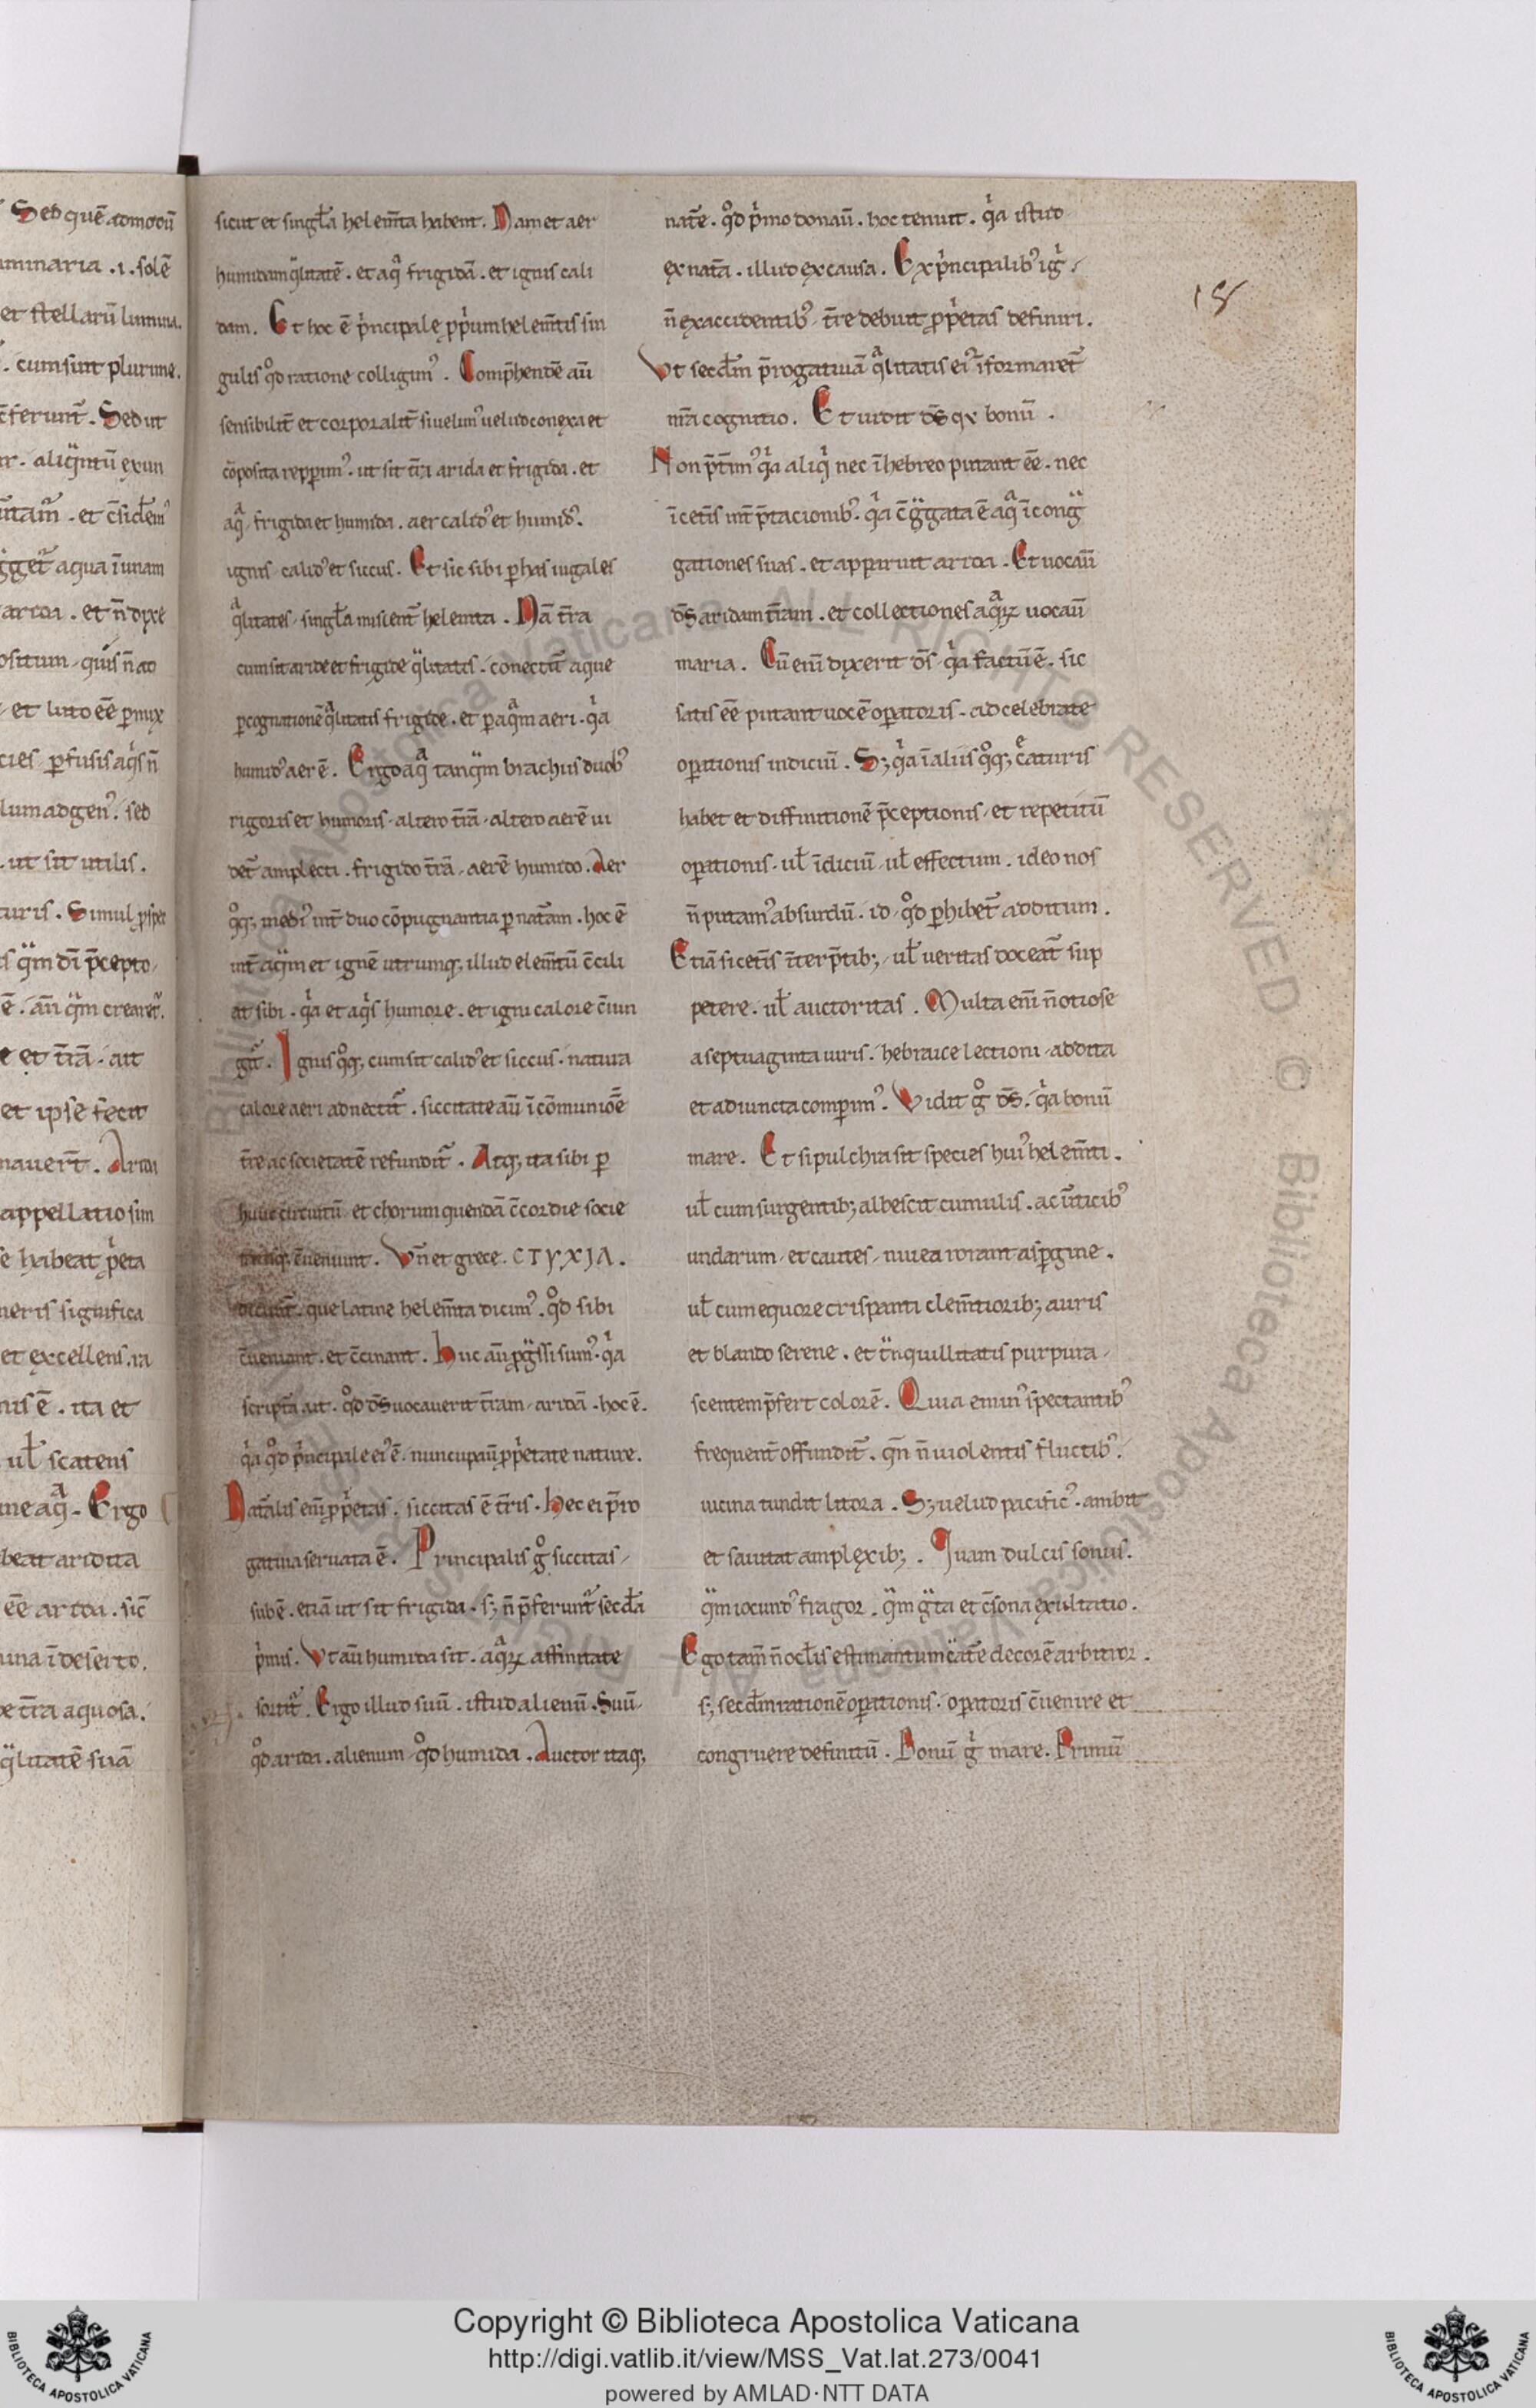 Sed quē admodū
minaria .i. solē
et stellarū lumina.
. cum sint plurime.
c̄ferunt̄. Sed ut
r. aliqͣntū exun
et c̄sidem᾽
gget̄ aqua ī unam
arida. et n̄ dixe
ositum. quis n̄ ad
et luto eē ꝑmix
cies ꝑfusis aqͥs n̄
lum ad gen᾽. sed
. ut sit utilis.
uris. Simul
s qͣm dī p̄cepto
ē. an̄ qͣm crearet̄.
e et t̄rā. ait
et ipse fecit
nauert̄. Arida
appellatio sim
se habeat
neris significa
et excellens. ia
nis ē. ita et
ul̄ scatens
ine aqͣ. Ergo
beat arida ita
eē arida. sic̄
una ī deserto.
e t̄ra aquosa.
qͣlitatē suā
sicut et singl̄a helem̄ta habent. Nam et aer
humidam qͣlitatē. et aqͣ frigidā. et ignis cali
dam. Et hoc ē pͥncipale ꝓpͥum helem̄tis sin
gulis qͦd ratione colligim᾽. Comp̄hendē au̅
sensibilit̄ et corporalit̄ si uelim᾽ uelud conexa et
cōposita repꝑim᾽. ut sit t̄ra arida et frigida. et
aqͣ. frigida et humida. aer calid᾽ et humid᾽.
ignis calid᾽ et siccus. Et sic sibi ꝑ has iugales
qͣlitates. singl̄a miscent̄ helemta. Nā t̄ra
cum sit aride et frigide qͣlitatis. conectit̄ aque
ꝑ cognationē qͣlitatis frigide. et ꝑ aqͣm aeri. qͥa
humid᾽ aer ē. Ergo aqͣ tanqͣm brachiis duob᾽
rigoris et humoris. altero t̄rā. altero aerē ui
det̄ amplecti. frigido t̄rā. aerē humido. Aer
qͦq; medi᾽ int̄ duo cōpugnantia ꝑ nat̄am. hoc ē
int̄ aqͣm et ignē utrumq; illud elem̄tū c̄cili
at sibi. qͥa et aqͥs humore. et igni calore c̄iun
git̄. Ignis qͦq; cum sit calid᾽ et siccus. natura
calore aeri adnectit̄. siccitate au̅ ī cōmunionē
t̄re ac societatē refundit̄. Atq; ita sibi ꝑ
hunc circuitū et chorum quendā c̄cordie socie
tatisq; c̄ueniunt. Vn̄ et grece. CTYXIA.
dicunt̄. que latine helem̄ta dicim᾽. qͦd sibi
c̄ueniant. et c̄cinant. Huc au̅ ꝓgͣssi sum᾽. qͥa
script̄a ait. qͦd d̄s uocauerit t̄ram aridā. hoc ē.
qͥa qͦd pͥncipale ei᾽ ē. nuncupau̅ ꝓpͥetate nature.
Nat̄alis eni̅ ꝓpͥetas. siccitas ē t̄ris. hec ei p̄ro
gatiua seruata ē. Principalis gͦ siccitas
sub ē. etiā ut sit frigida. s; n̄ p̄ferunt̄ secd̄a
pͥmis. Vt au̅ humida sit. aqͣꝝ affinitate
sortit̄. Ergo illud suū. istud alienū. Suū
qͦd arida. alienum qͦd humida. Auctor itaq;
nat̄e. qͦd pͥmo donau̅. hoc tenuit. qͥa istud
ex nat̄a. illud ex causa. Ex pͥncipalib᾽ igͥ
n̄ ex accidentib᾽ t̄re debuit ꝓpͥetas definiri.
Vt secd̄m p̄rogatiuā qͣlitatis ei᾽ īformaret̄
nr̄a cognitio. Et uidit d̄s qx bonū.
Non p̄tim᾽ qͥa aliqͥ nec ī hebreo putant eē. nec
ī cet̄is int̄p̄tacionib᾽. qͥa c̄gͣgata ē aqͣ ī congͣ
gationes suas. et apparuit arida. Et uocau̅
d̄s aridam t̄ram. et collectiones aqͣꝝ uocau̅
maria. Cū eni̅ dixerit d̄s. qͥa factū ē. sic
satis eē putant uocē oꝑatoris. ad celebrate
oꝑationis indiciū. S; qͥa ī aliis qͦq; cͤaturis
habet et diffinitionē p̄ceptionis. et repetitū
oꝑationis. ul̄ īdiciū. ul̄ effectum. ideo nos
n̄ putam᾽ absurdū. id. qͦd ꝑhibet̄ additum.
Etiā si cet̄is īterp̄tib; ul̄ ueritas doceat̄ sup
petere. ul̄ auctoritas. Multa eni̅ n̄ otiose
a septuaginta uiris. hebraice lectioni addita
et adiuncta comꝑim᾽. Vidit gͦ d̄s. qͥa bonū
mare. Et si pulchra sit species hui᾽ helem̄ti.
ul̄ cum surgentib; albescit cumulis. ac u̅ticib᾽
undarum. et cautes niuea rorant asꝑgine.
ul̄ cum equore crispanti clem̄tiorib; auris
et blando serene. et tͣnquillitatis purpura
scentem p̄fert colorē. Quia emin᾽ spectantib᾽
frequent̄ offundit̄. qn̄ n̄ uiolentis fluctib᾽.
uicina tundit litora. S; uelud pacific᾽. ambit
et salutat amplexib;. Quam dulcis sonus.
qͣm iocund᾽ fragor. qͣm gͣta et c̄sona exultatio.
Ego tam̄ n̄ ocl̄is estimantum cͣate decorē arbitror.
s; secd̄m rationē oꝑationis. oꝑatoris c̄uenire et
congruere definitū. Bonū gͥ mare. Primū
18
Copyright © Biblioteca Apostolica Vaticana
http://digi.vatlib.it/view/MSS_Vat.lat.273/0041
powered by AMLAD·NTT DATA
BIBLIOTECA APOSTOLICA VATICANA
BIBLIOTECA APOSTOLICA VATICANA
Biblioteca Apostolica Vaticana ALL RIGHTS RESERVED ©